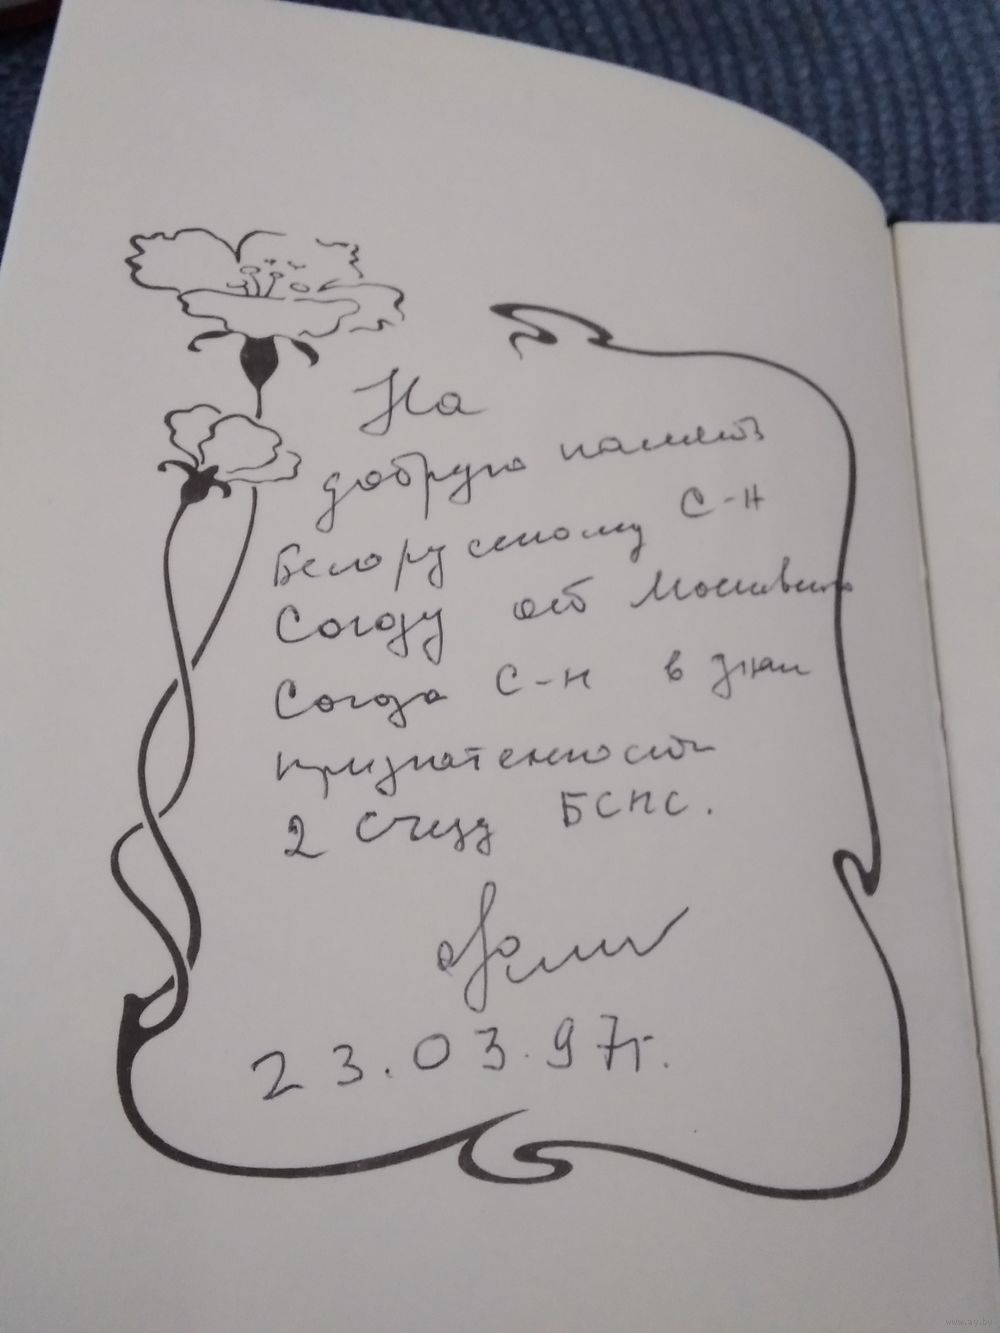 На
добрую память
Белорусскому С-Н
Союзу от Московского
Союза С-Н в знак
признательности
2 Съезду БСПС.
23.03.97г.
www.ay.by